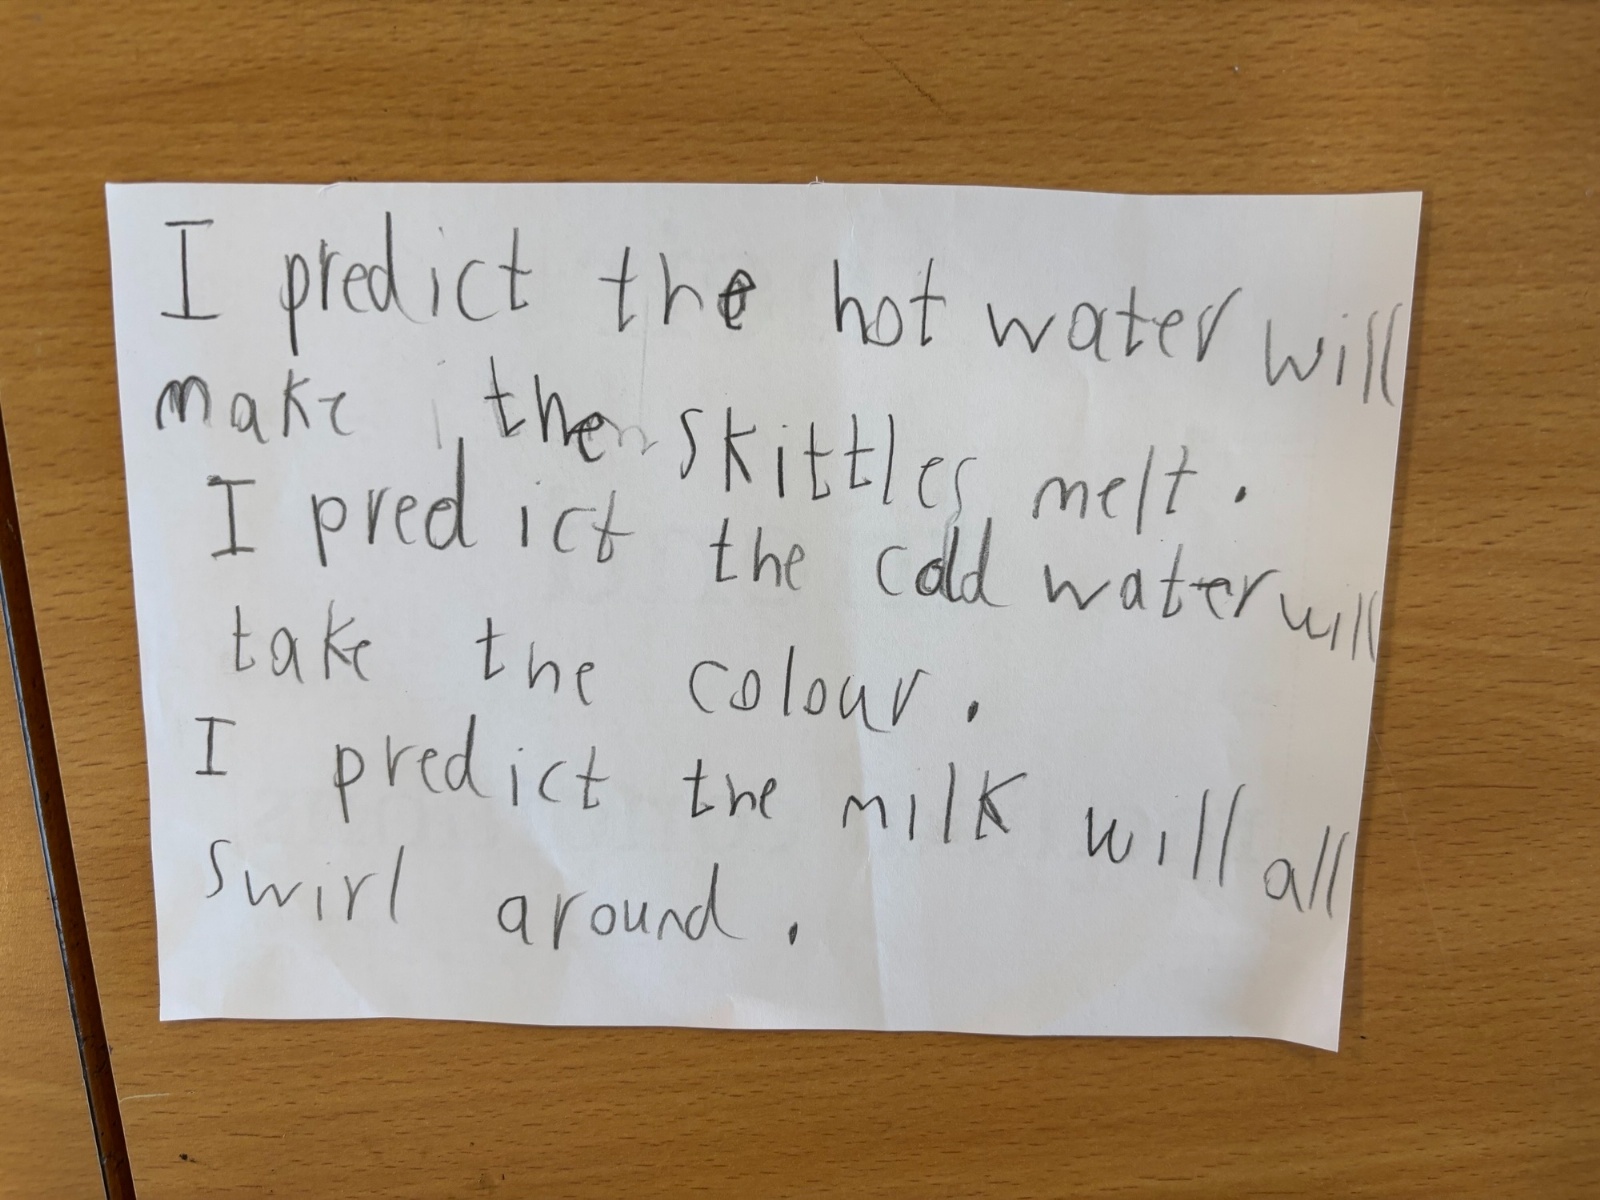 I predict the hot water will
make the skittles melt.
I predict the cold water will
take the colour.
I predict the milk will all
swirl around.